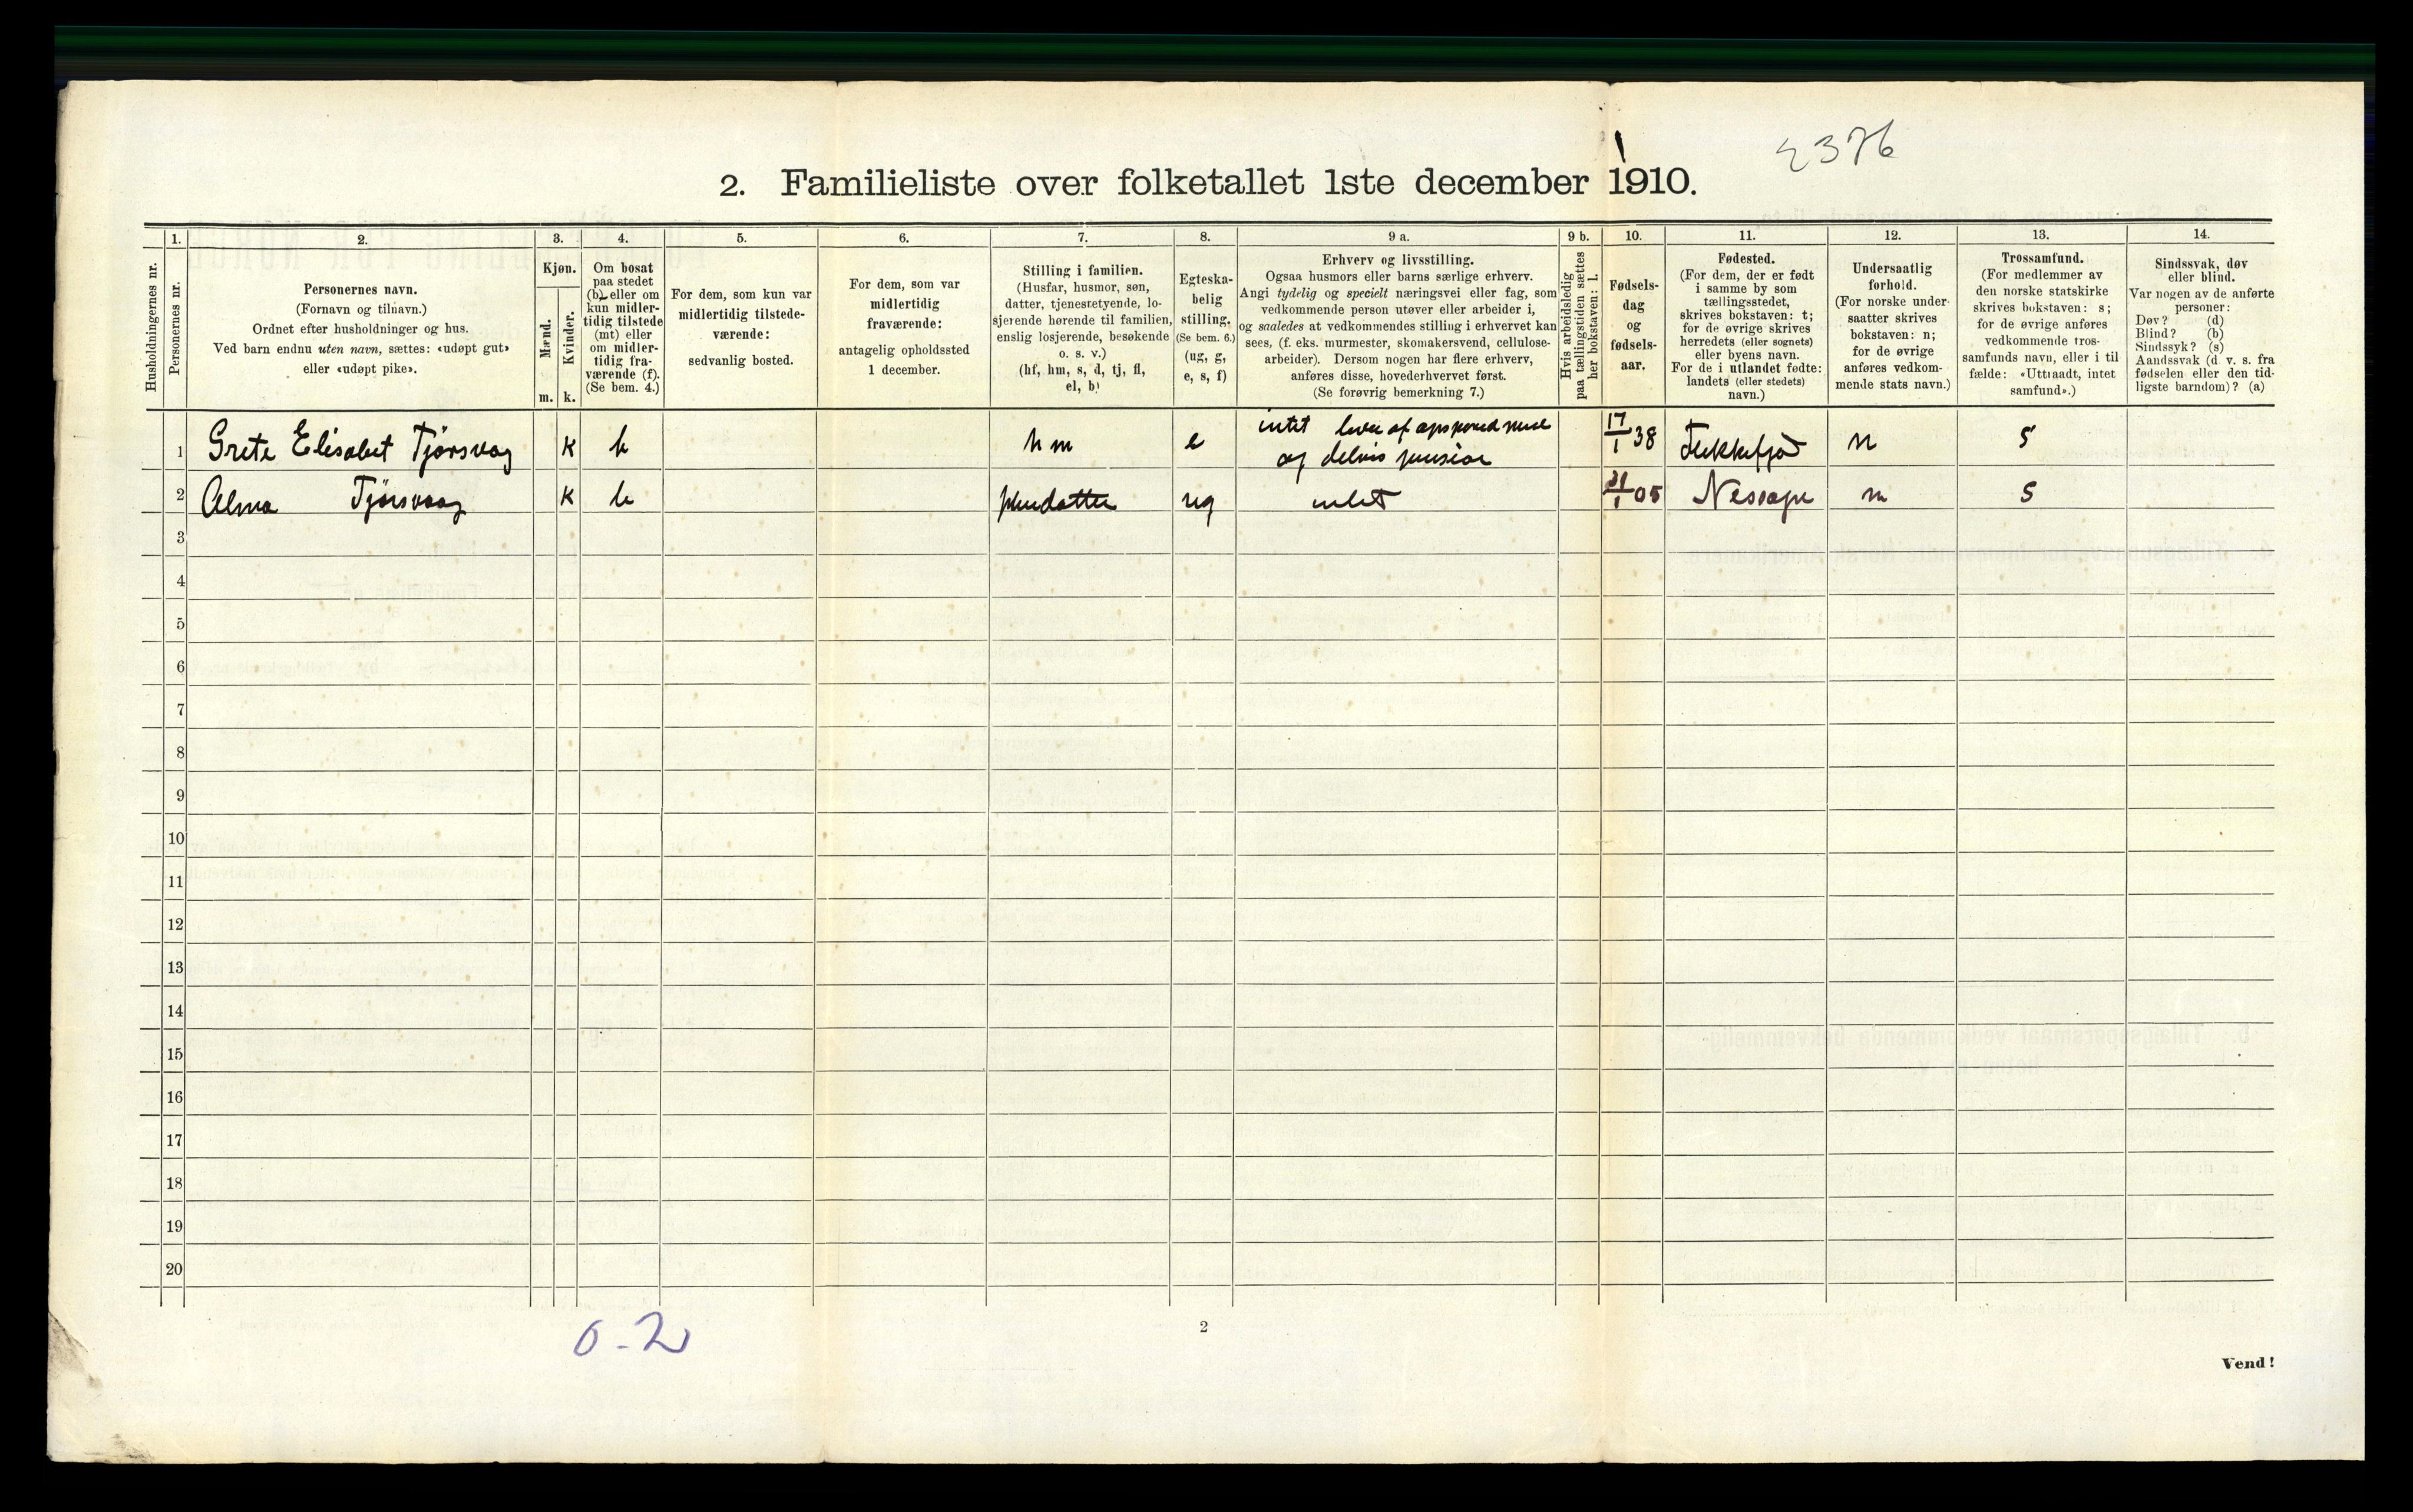 2376
2. Familieliste over folketallet 1ste december 1910.
Husholdningernes nr.
1.
Personernes nr.
2.
Personernes navn.
(Fornavn og tilnavn.)
Ordnet efter husholdninger og hus.
Ved barn endnu uten navn, sættes: «udøpt gut»
eller «udøpt pike».
3.
Kjøn.
Mænd.
Kvinder.
m. k.
4.
Om bosat
paa stedet
(b) eller om
kun midler-
tidig tilstede
(mt) eller
om midler-
tidig fra-
værende (f).
(Se bem. 4.)
5.
For dem, som kun var
midlertidig tilstede-
værende:
sedvanlig bosted.
6.
For dem, som var
midlertidig
fraværende:
antagelig opholdssted
1 december.
7.
Stilling i familien.
(Husfar, husmor, søn,
datter, tjenestetyende, lo-
sjerende hørende til familien,
enslig losjerende, besøkende
o. s. v.)
(hf, hm, s, d, tj, fl,
el, b)
8.
Egteska-
belig
stilling.
(Se bem. 6.)
(ug, g,
e, s, f)
9 a.
Erhverv og livsstilling.
Ogsaa husmors eller barns særlige erhverv.
Angi tydelig og specielt næringsvei eller fag, som
vedkommende person utøver eller arbeider i,
og saaledes at vedkommendes stilling i erhvervet kan
sees, (f. eks. murmester, skomakersvend, cellulose-
arbeider). Dersom nogen har flere erhverv,
anføres disse, hovederhvervet først.
(Se forøvrig bemerkning 7.)
9 b.
Hvis arbeidsledig
paa tællingstiden sættes
her bokstaven: l.
10.
Fødsels-
dag
og
fødsels-
aar.
11.
Fødested.
(For dem, der er født
i samme by som
tællingsstedet,
skrives bokstaven: t;
for de øvrige skrives
herredets (eller sognets)
eller byens navn.
For de i utlandet fødte:
landets (eller stedets)
navn.)
12.
Undersaatlig
forhold.
(For norske under-
saatter skrives
bokstaven: n;
for de øvrige
anføres vedkom-
mende stats navn.)
13.
Trossamfund.
(For medlemmer av
den norske statskirke
skrives bokstaven: s;
for de øvrige anføres
vedkommende tros-
samfunds navn, eller i til
fælde: «Uttraadt, intet
samfund».)
14.
Sindssvak, døv
eller blind.
Var nogen av de anførte
personer:
Døv? (d)
Blind? (b)
Sindssyk? (s)
Aandssvak (d v. s. fra
fødselen eller den tid-
ligste barndom)? (a)
1 Grete Elisabet Tjørsvag K b hm e intet lever af opspared
og delvis pension 17/1 38 Flekkefjord n s
2 Alma Tjørsvaag K b pleiedatter ug intet 31/1 05 n s
3
4
5
6
7
8
9
10
11
12
13
14
15
16
17
18
19
20
0-2
2
Vend!